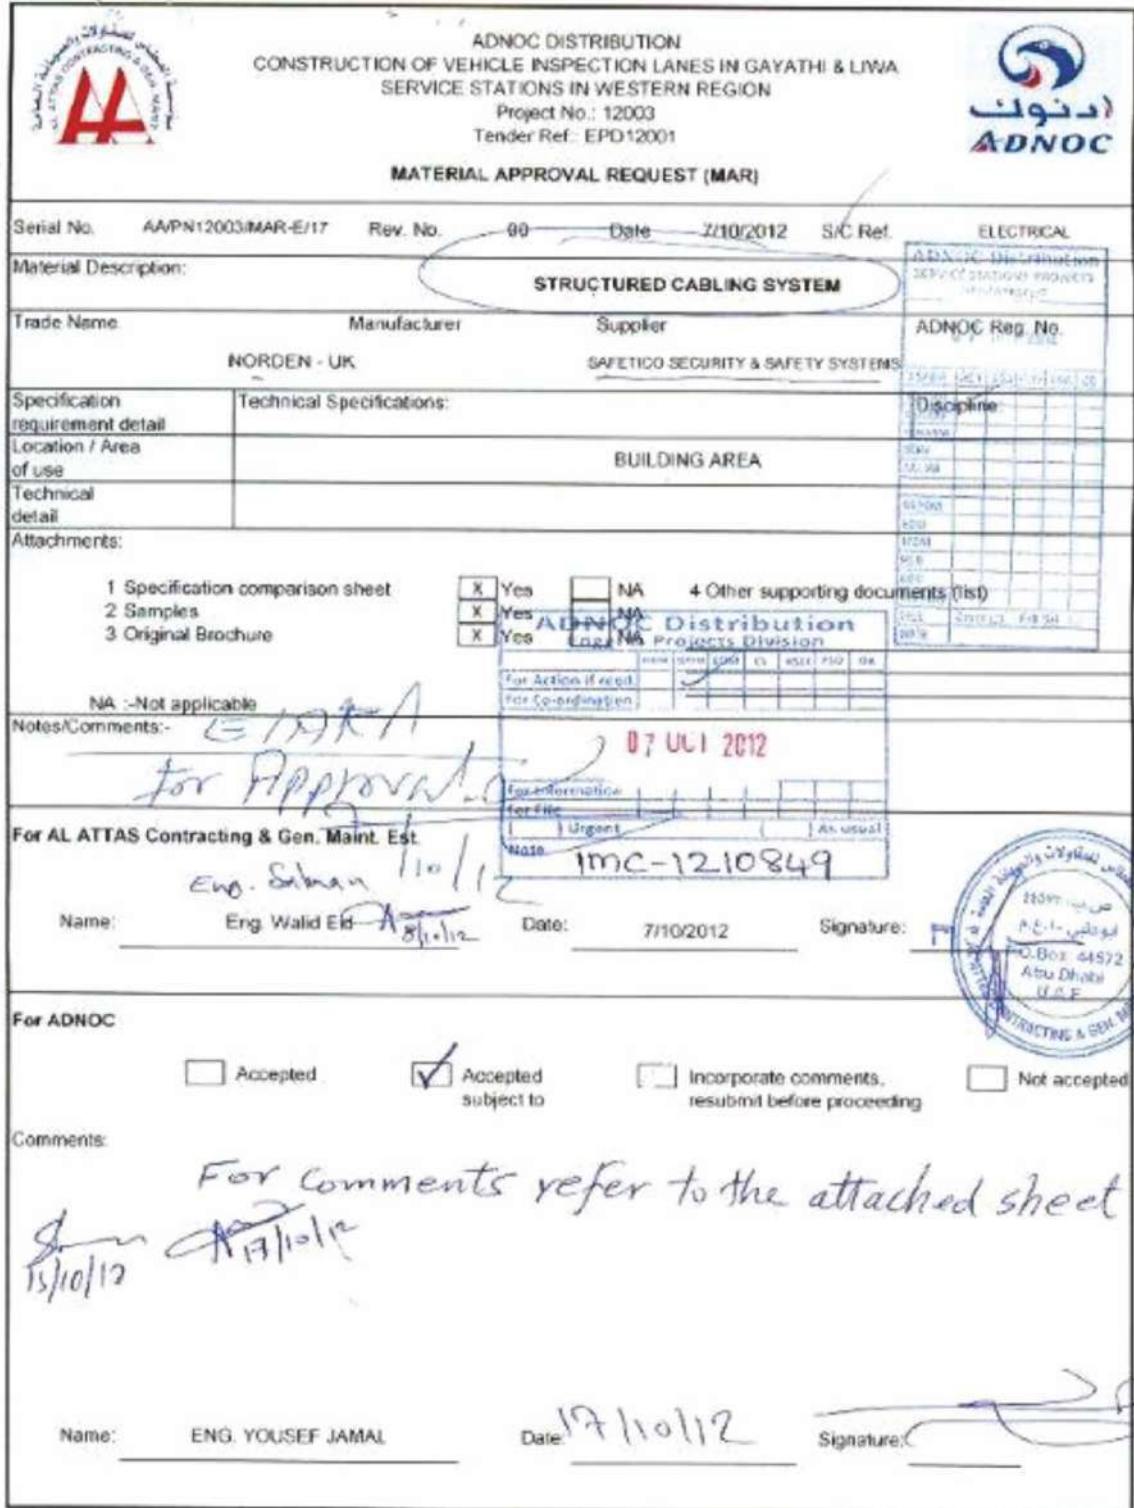 ADNOC DISTRIBUTION
CONSTRUCTION OF VEHICLE INSPECTION LANES IN GAYATHI & LIWA
SERVICE STATIONS IN WESTERN REGION
Project No.: 12003
Tender Ref.: EPD12001
MATERIAL APPROVAL REQUEST (MAR)
AL ATTAS CONTRACTING & GEN. MAINT.
أدنوك
ADNOC
Serial No. AA/PN12003/MAR-E/17 Rev. No. 00 Date 7/10/2012 S/C Ref. ELECTRICAL
Material Description: STRUCTURED CABLING SYSTEM
ADNOC Distribution
SERVICE STATIONS PROJECTS
Trade Name Manufacturer Supplier ADNOC Reg. No.
NORDEN - UK SAFETICO SECURITY & SAFETY SYSTEMS
Specification requirement detail Technical Specifications: Discipline:
Location / Area of use BUILDING AREA
Technical detail
Attachments:
1 Specification comparison sheet X Yes NA 4 Other supporting documents (list)
2 Samples X Yes NA
3 Original Brochure X Yes NA
ADNOC Distribution
Projects Division
For Action if reqd.
For Co-ordination
NA :-Not applicable
Notes/Comments:-
for Approval
07 OCT 2012
For Information
For File
Urgent As usual
Note
IMC-1210849
For AL ATTAS Contracting & Gen. Maint. Est.
Eng. Salman
Name: Eng. Walid Eld 8/10/12 Date: 7/10/2012 Signature:
P.O.Box: 44572
Abu Dhabi
U.A.E
For ADNOC
Accepted
Accepted subject to
Incorporate comments, resubmit before proceeding
Not accepted
Comments:
For comments refer to the attached sheet
15/10/12 17/10/12
Name: ENG. YOUSEF JAMAL Date: 17/10/12 Signature: